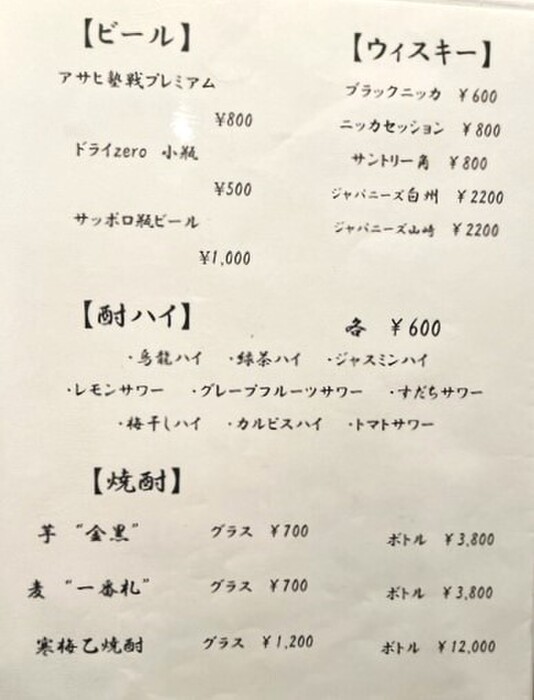 【ビール】
アサヒ塾戦プレミアム
¥800
ドライzero 小瓶
¥500
サッポロ瓶ビール
¥1,000
【ウィスキー】
ブラックニッカ ¥600
ニッカセッション ¥800
サントリー角 ¥800
ジャパニーズ白州 ¥2200
ジャパニーズ山崎 ¥2200
【酎ハイ】 各 ¥600
・烏龍ハイ ・緑茶ハイ ・ジャスミンハイ
・レモンサワー ・グレープフルーツサワー ・すだちサワー
・梅干しハイ ・カルピスハイ ・トマトサワー
【焼酎】
芋 "金黒" グラス ¥700 ボトル ¥3,800
麦 "一番札" グラス ¥700 ボトル ¥3,800
寒梅乙焼酎 グラス ¥1,200 ボトル ¥12,000